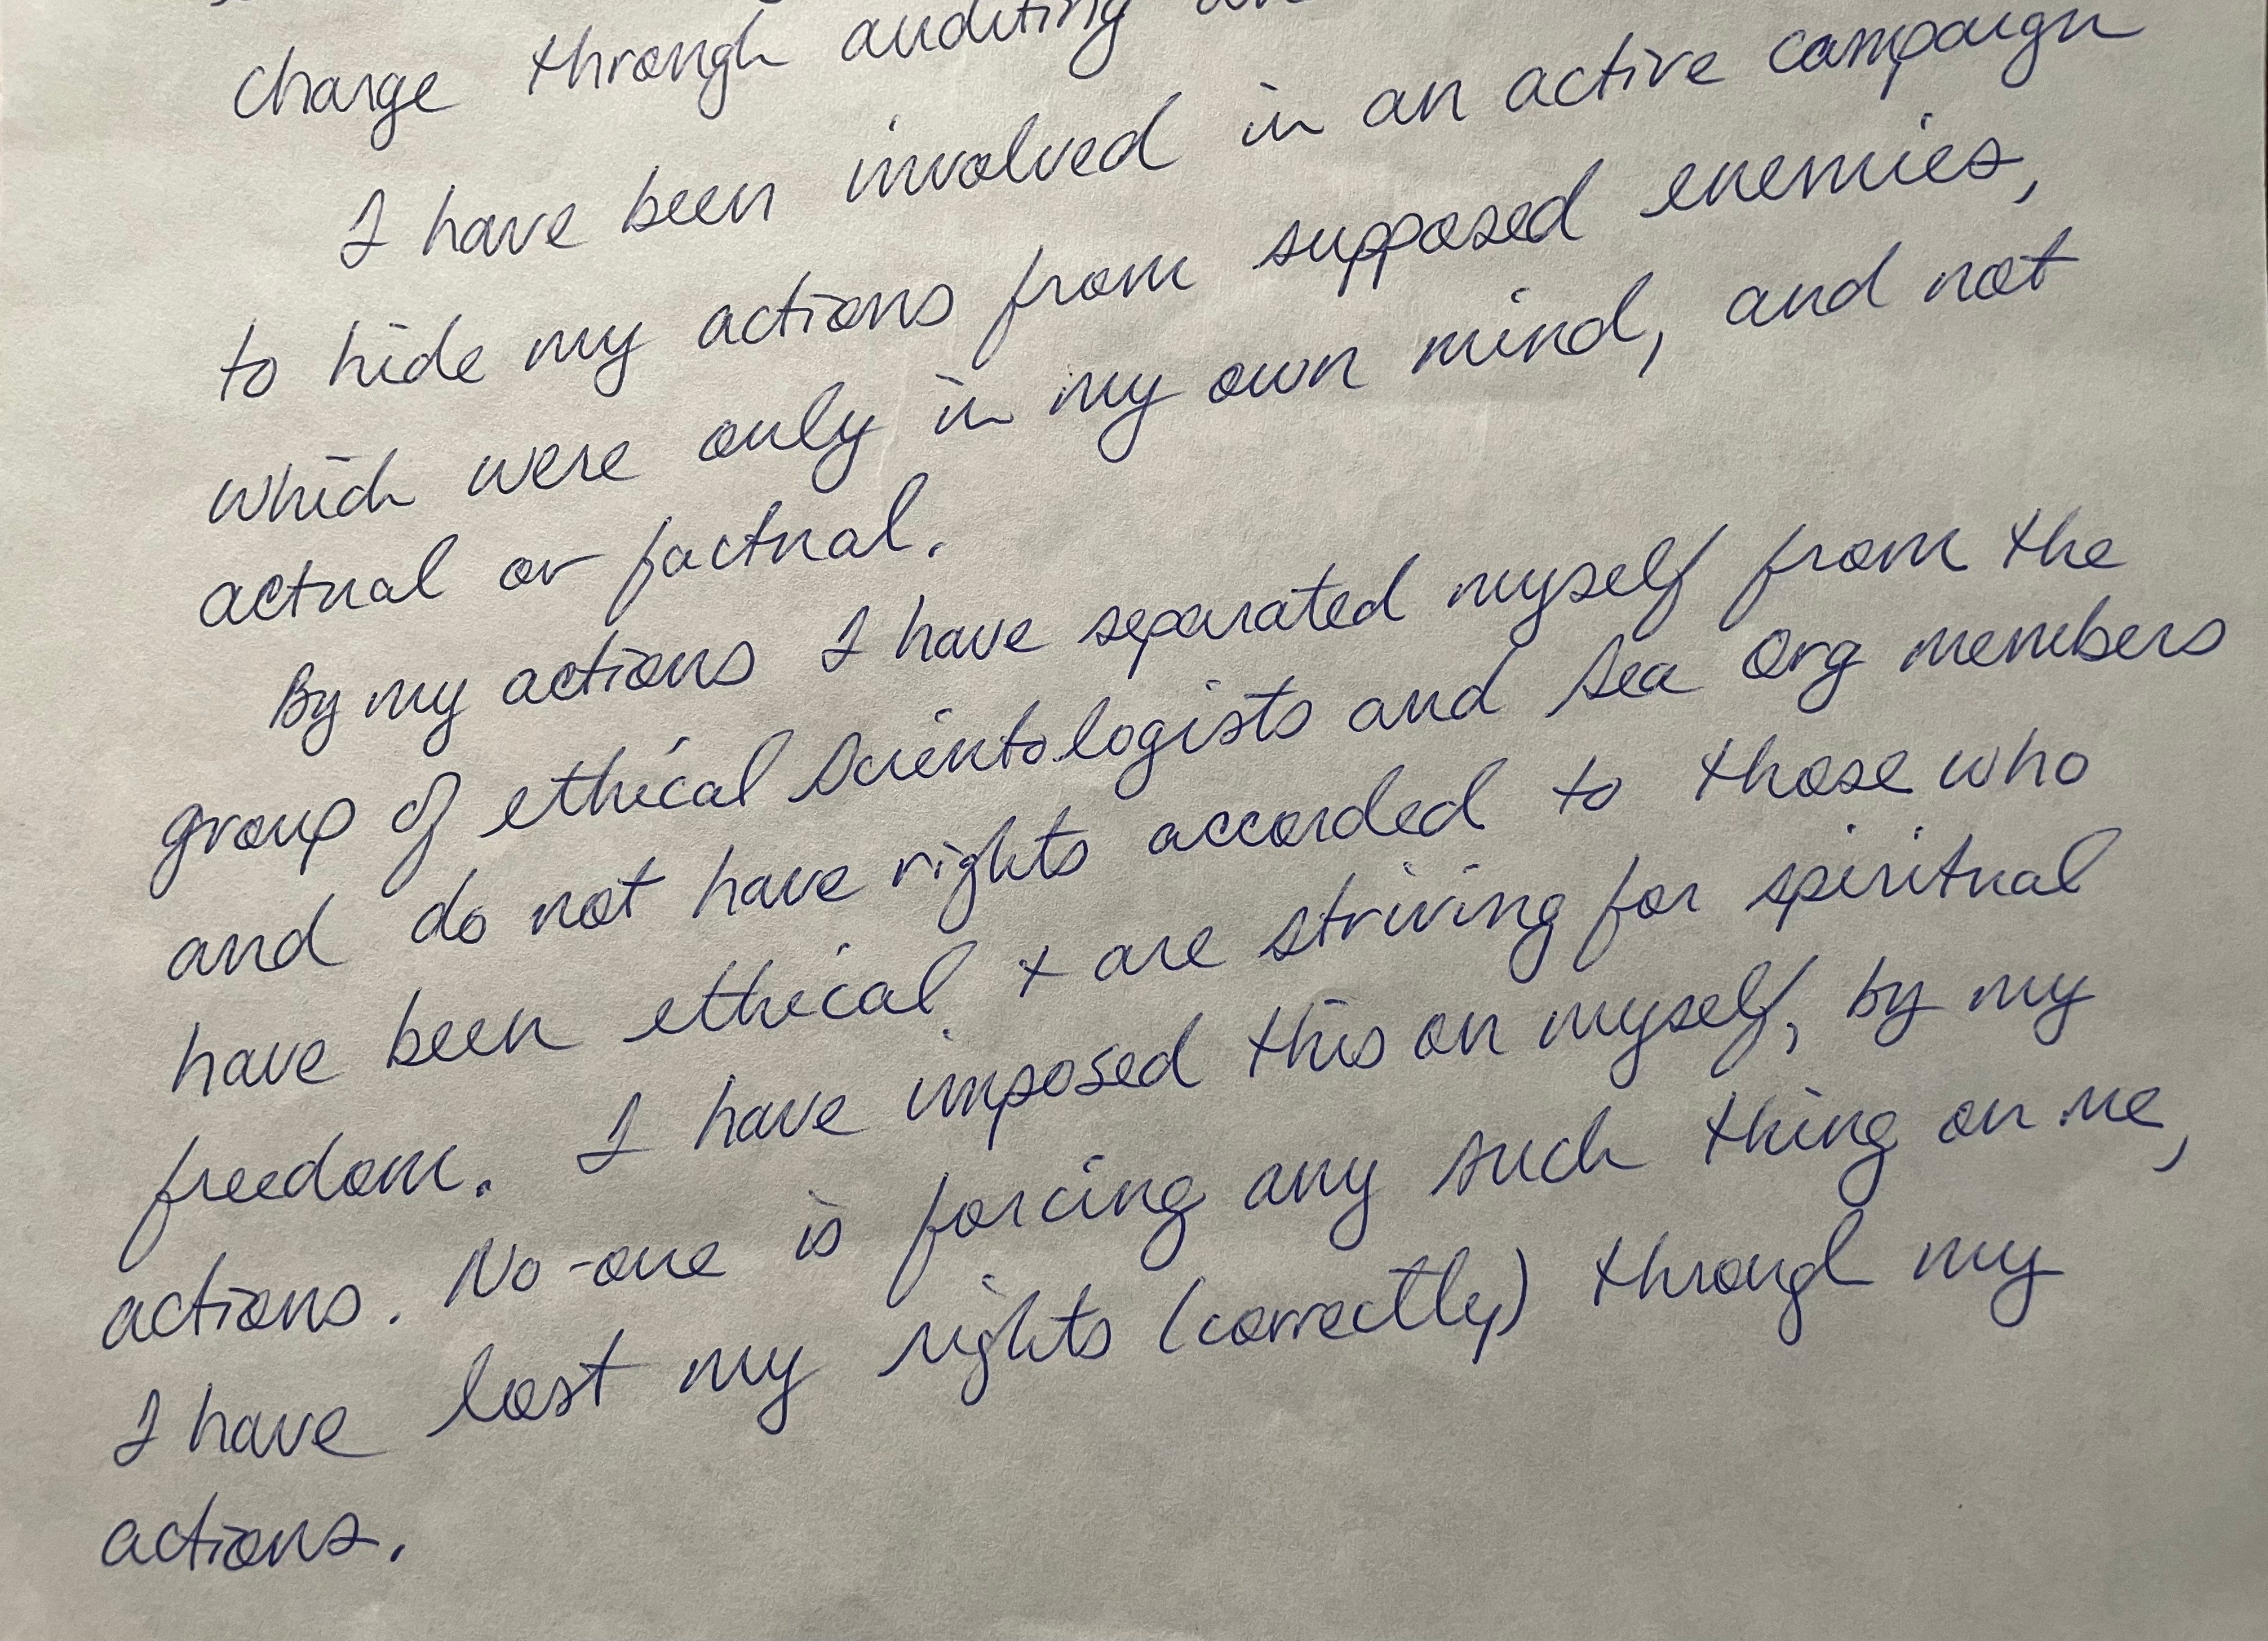 charge through auditing
I have been involved in an active campaign
to hide my actions from supposed enemies,
which were only in my own mind, and not
actual or factual.
By my actions I have separated myself from the
group of ethical Scientologists and Sea Org members
and do not have rights accorded to those who
have been ethical + are striving for spiritual
freedom. I have imposed this on myself, by my
actions. No-one is forcing any such thing on me,
I have lost my rights (correctly) through my
actions.